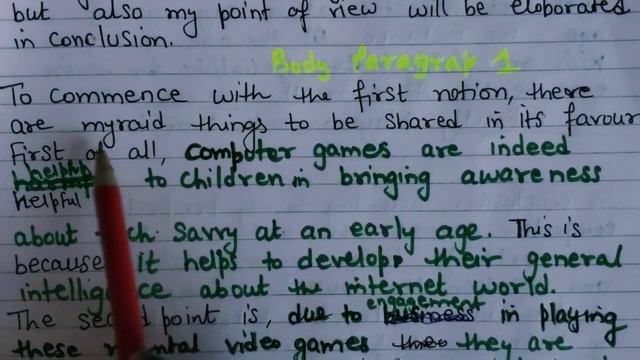 but also my point of view will be eloborated
in conclusion.
Body Paragrap 1
To commence with the first notion, there
are myraid things to be shared in its favour
First of all, computer games are indeed
helpful
helpful to children in bringing awareness
about tech savvy at an early age. This is
because it helps to develop their general
intelligence about the internet world.
engagement
The second point is, due to in playing
these mental video games they are